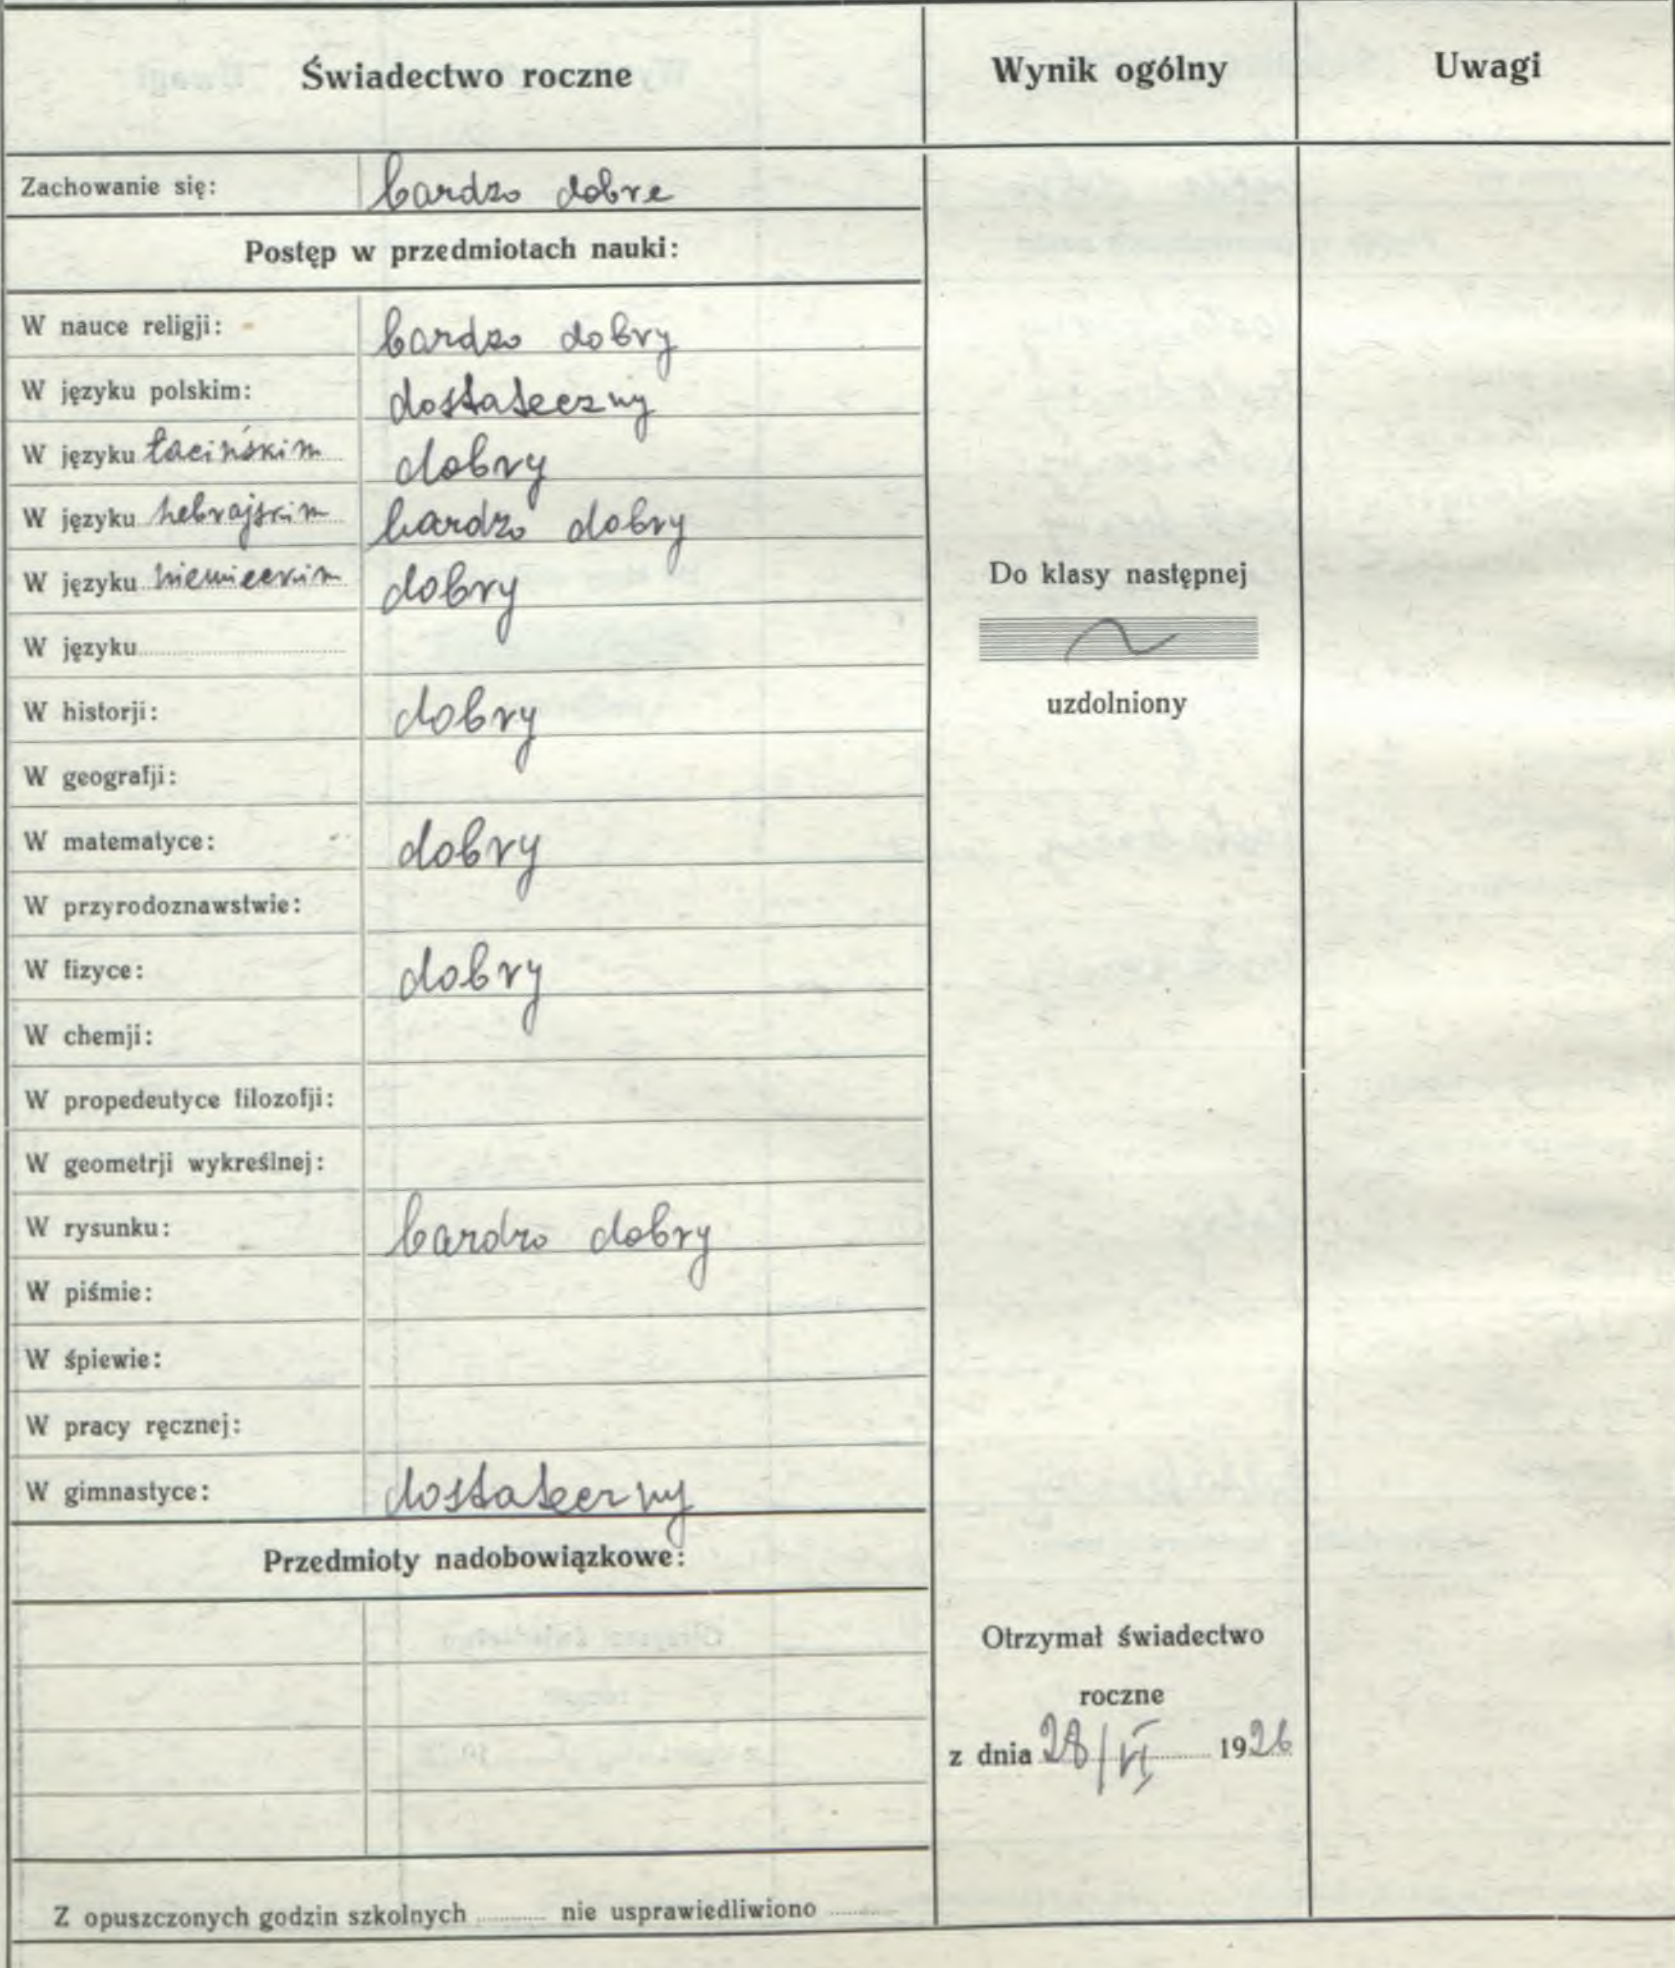 Świadectwo roczne
Wynik ogólny
Uwagi
Zachowanie się: bardzo dobre
Postęp w przedmiotach nauki:
W nauce religji: bardzo dobry
W języku polskim: dostateczny
W języku łacińskim dobry
W języku hebrajskim bardzo dobry
W języku niemieckim dobry
W języku
W historji: dobry
W geografji:
W matematyce: dobry
W przyrodoznawstwie:
W fizyce: dobry
W chemji:
W propedeutyce filozofji:
W geometrji wykreślnej:
W rysunku: bardzo dobry
W piśmie:
W śpiewie:
W pracy ręcznej:
W gimnastyce: dostateczny
Przedmioty nadobowiązkowe:
Z opuszczonych godzin szkolnych ........ nie usprawiedliwiono ........
Do klasy następnej
uzdolniony
Otrzymał świadectwo
roczne
z dnia 28/VI 1926